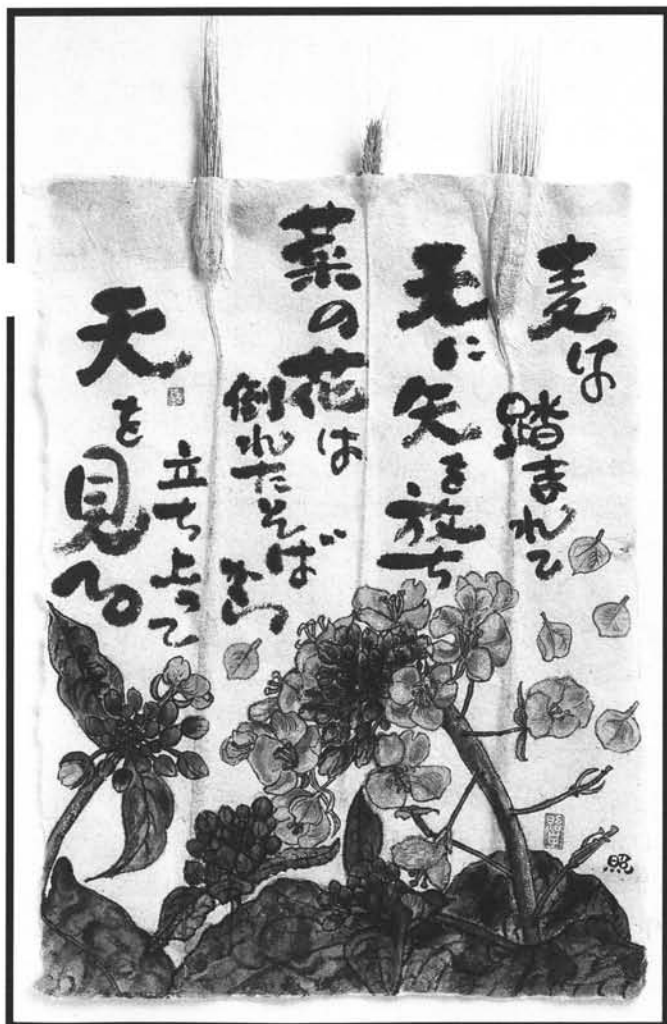 麦は
踏まれて
天に
矢を放ち
菜の花は
倒れたそばから
立ち上って
天を
見る
照